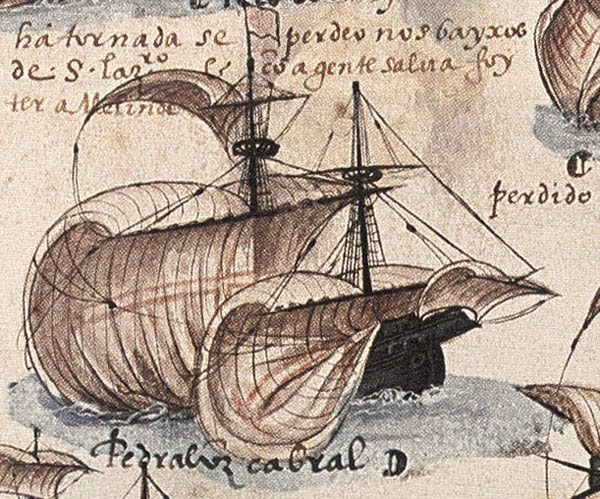 há tornada se perdeo nos bayxos
de .S. lazro e cõ a gente salua foy
ter a Melinde
perdido
Pedraluz cabral D